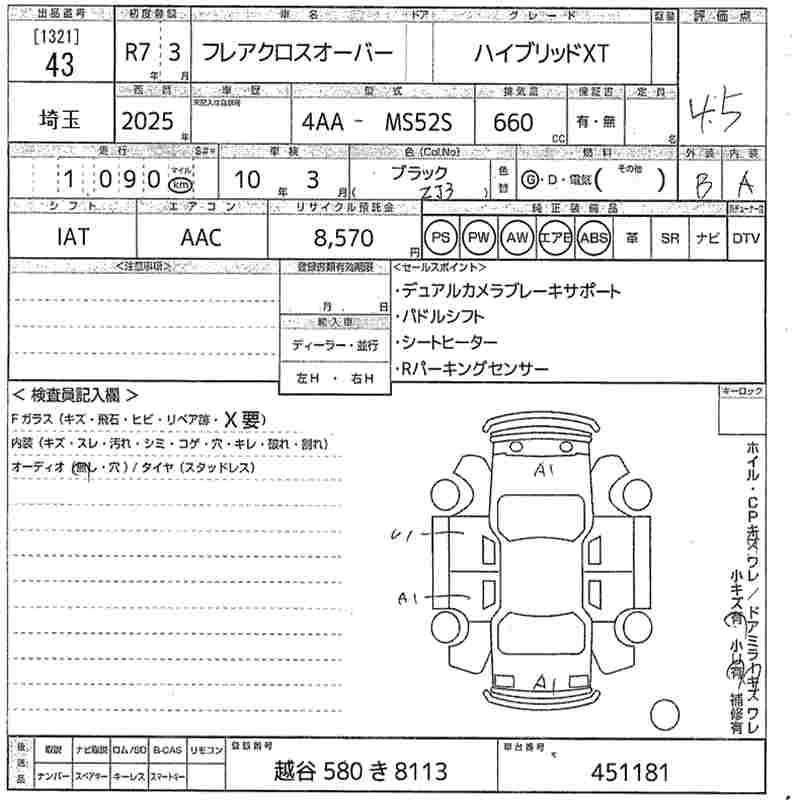 出品番号 初度登録 車名 ドア グレード 評価点
[1321]
43 R7年 3月 フレアクロスオーバー ハイブリッドXT 4.5
車歴 型式 排気量 保証書 定員
埼玉 2025年 4AA - MS52S 660cc 有・無 名
走行 車検 色(Col.No) 燃料 外装 内装
1 0 9 0 マイル km 10年 3月 ブラック ( ZJ3 ) 色替 G・D・電気( その他 ) B A
シフト エアコン リサイクル預託金 純正装備品
IAT AAC 8,570円 PS PW AW エアB ABS 革 SR ナビ DTV
<注意事項> 登録書類有効期限 <セールスポイント>
月 日
・デュアルカメラブレーキサポート
輸入車
・パドルシフト
ディーラー・並行
・シートヒーター
左H ・ 右H
・Rパーキングセンサー
< 検査員記入欄 > キーロック
Fガラス (キズ・飛石・ヒビ・リペア跡・X要)
内装 (キズ・スレ・汚れ・シミ・コゲ・穴・キレ・破れ・割れ)
オーディオ (無し・穴) / タイヤ (スタッドレス)
A1
U1
A1
A1
ホイル・CPキズワレ / ドアミラーキズワレ
小キズ有 小U有 補修有
後送品 取説 ナビ取説 ロム/SD B-CAS リモコン 登録番号 車台番号
ナンバー スペアキー キーレス スマートキー 越谷 580 き 8113 451181